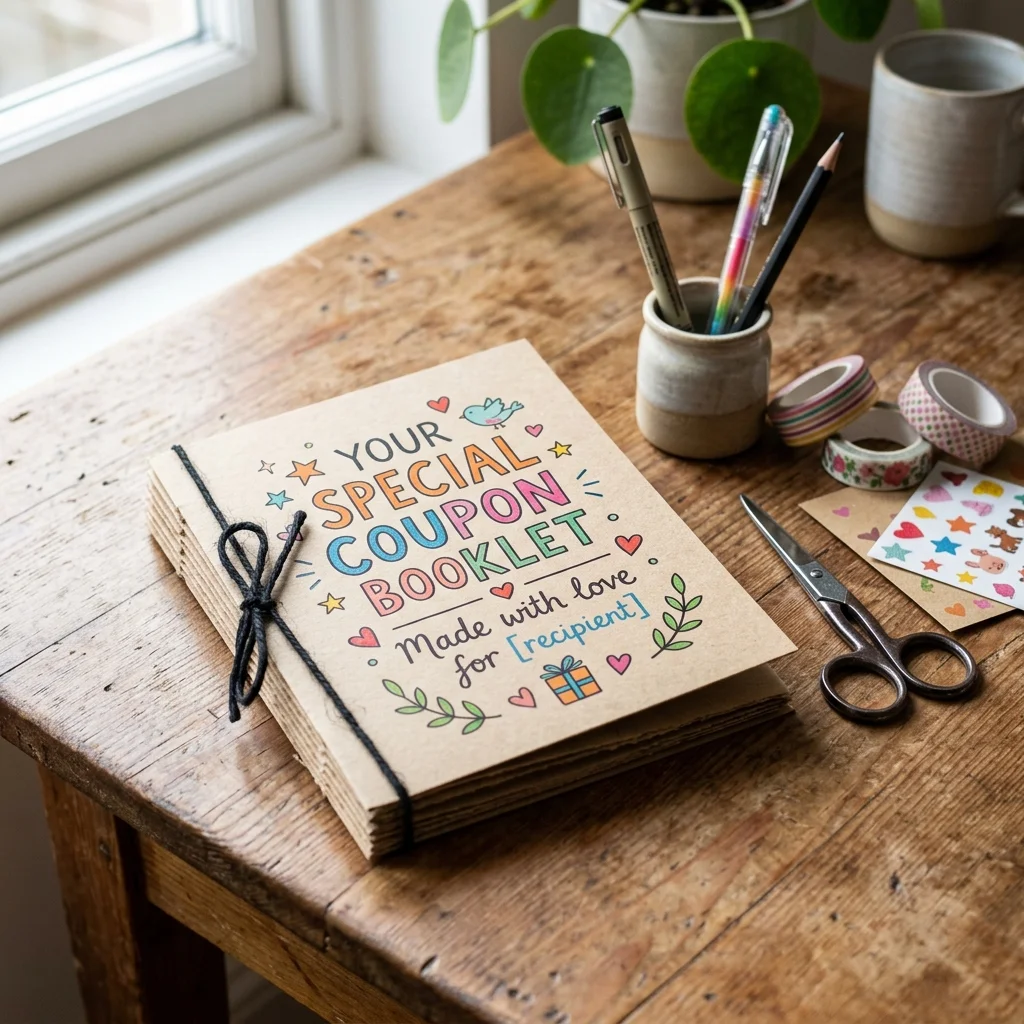 YOUR
SPECIAL
COUPON
BOOKLET
Made with love
for [recipient]